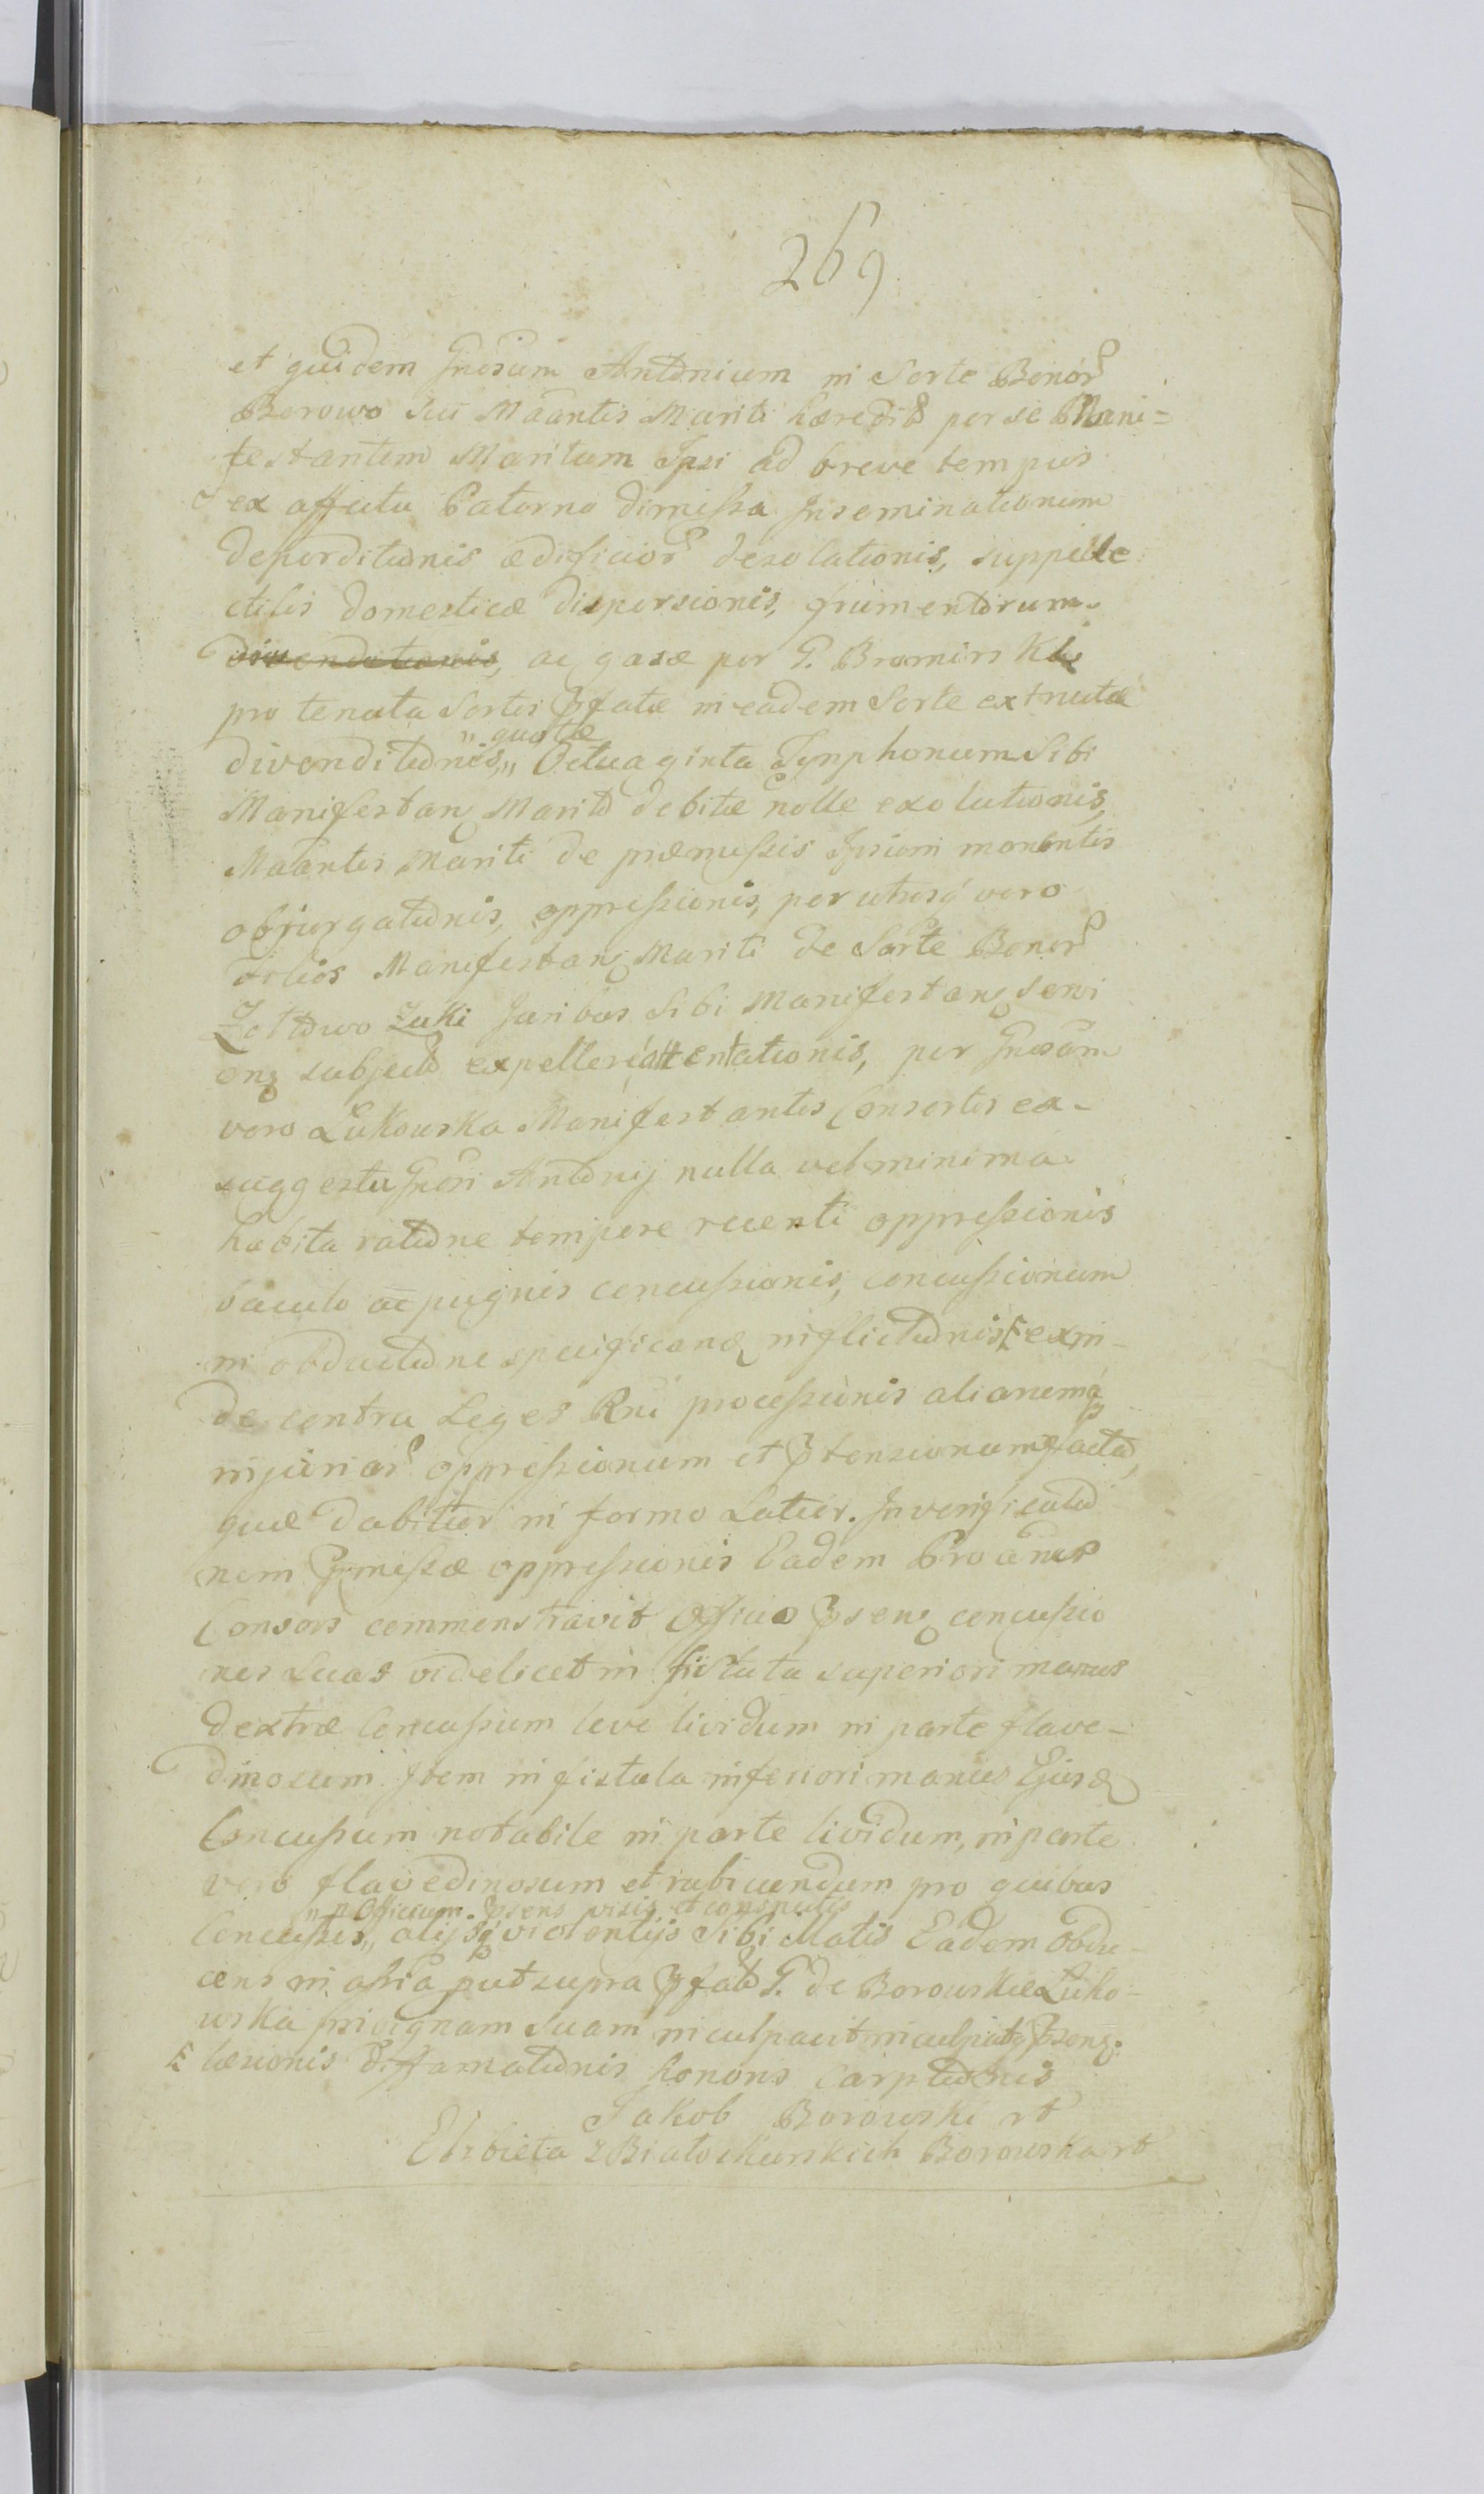 269
et quidem Gnosum Antonium in Sorte Bonor
Borowo Sui Maantis Mariti hæredit per se Mani=
festantem Maritum Ipsi ad breve tempus
ex affectu Paterno dimissa Inseminationum
deperditionis ædificior desolationis, suppelle
ctilis domesticæ dispersionis, frumentorum
divendationis, ac gazæ per G. Bromirski
pro tenuta Sortis pfatæ in eadem Sorte extructæ
" quotæ
divenditionis,,, Octuaginta Tynphonum Sibi
Manifestan Marito debitæ nolle exolutionis,
Maantis Mariti de præmissis Ipsum monentis
objurgationis, oppressionis, per utrosq vero
filios Manifestan Mariti de Sorte Bonor
Żottowo Łuki Juribus Sibi Manifestan servi
en subjecto expelleri attentationis, per Gnosam
vero Łukowska Manifestantis Consortis ex
suggestu Gnosi Antonij nulla vel minima
habita ratione tempore recenti oppressionis
baculo ac pugnis concussionis, concussionum
in obductione specificand inflictionis exin-
de contra Leges Rni processionis aliarumq
injuriar oppressionum et ptensionum factar,
quæ dabitur in forma Latior. In verificatio
nem Præmissæ oppressionis Eadem Proanus
Consors commenstravit Officio psen concussio
nes Suas videlicet in fistula superiori manus
dextræ Concussum leve lividum in parte flave-
dinosum Item in fistula inferiori manus Ejusd
Concussum notabile in parte lividum, in parte
vero flavedinosum et rubicundum pro quibus
" p Officium psens visis et conspectis
Concussis,, alijsq violentijs Sibi illatis Eadem obdu-
cens in assia put supra pfat G. de Borowskie Łuko-
wska privignam Suam inculpavit inculpatq psen.
læsionis diffamationis honoris Carptionis
Jakob Borowski rt
Elzbieta z Białoskurskich Borowska rt